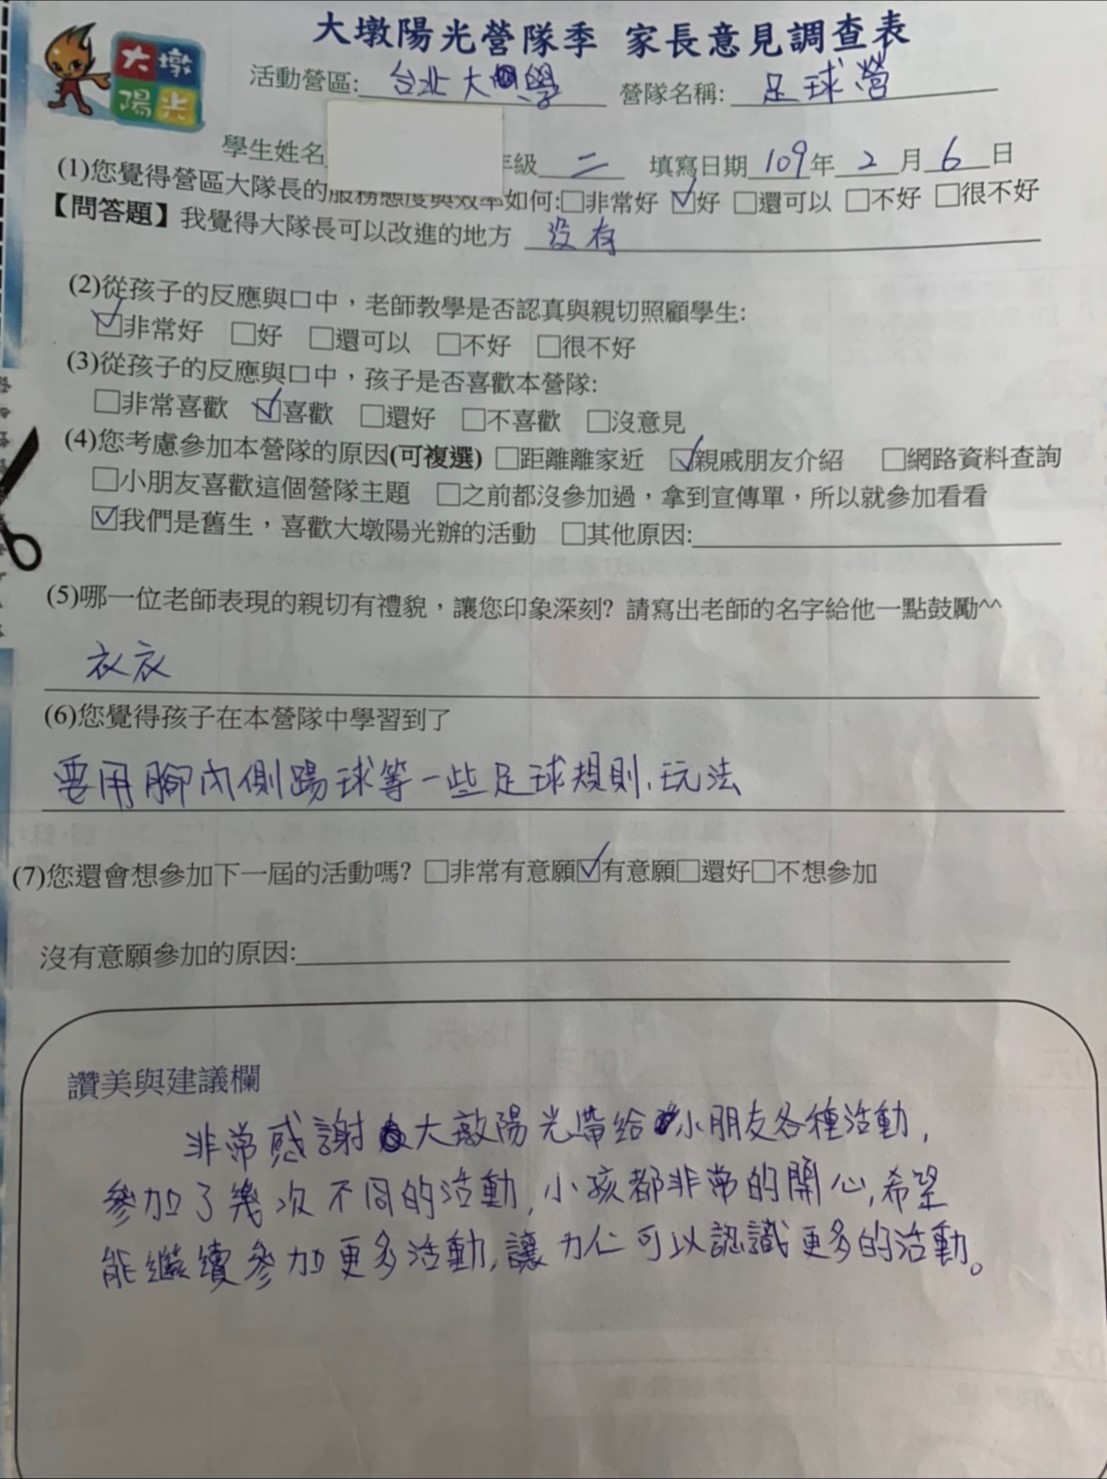 大墩陽光營隊季 家長意見調查表
大墩
陽光
活動營區: 台北大學 營隊名稱: 足球營
學生姓名 年級 二 填寫日期 109年 2 月 6 日
(1)您覺得營區大隊長的服務態度與效率如何:☐非常好 ☑好 ☐還可以 ☐不好 ☐很不好
【問答題】我覺得大隊長可以改進的地方 沒有
(2)從孩子的反應與口中，老師教學是否認真與親切照顧學生:
☑非常好 ☐好 ☐還可以 ☐不好 ☐很不好
(3)從孩子的反應與口中，孩子是否喜歡本營隊:
☐非常喜歡 ☑喜歡 ☐還好 ☐不喜歡 ☐沒意見
(4)您考慮參加本營隊的原因(可複選) ☐距離離家近 ☑親戚朋友介紹 ☐網路資料查詢
☐小朋友喜歡這個營隊主題 ☐之前都沒參加過，拿到宣傳單，所以就參加看看
☑我們是舊生，喜歡大墩陽光辦的活動 ☐其他原因:
(5)哪一位老師表現的親切有禮貌，讓您印象深刻? 請寫出老師的名字給他一點鼓勵^^
衣衣
(6)您覺得孩子在本營隊中學習到了
要用腳內側踢球等一些足球規則、玩法
(7)您還會想參加下一屆的活動嗎? ☐非常有意願☑有意願☐還好☐不想參加
沒有意願參加的原因:
讚美與建議欄
非常感謝大墩陽光帶給小朋友各種活動,
參加了幾次不同的活動,小孩都非常的開心,希望
能繼續參加更多活動,讓力仁可以認識更多的活動。